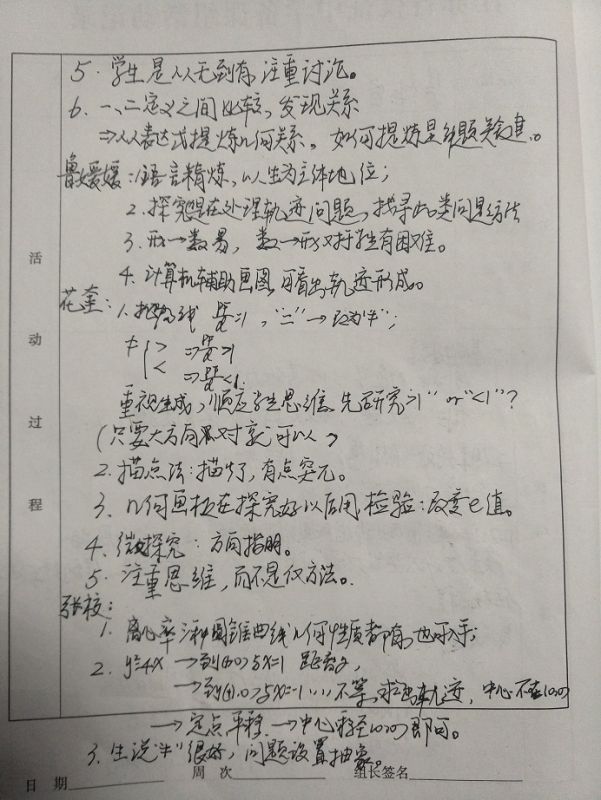 5. 学生是从无到有,注重讨论。
6. 一、二定义之间比较,发现关系
⇒从表达式提炼几何关系,如何提炼是难题关键。
鲁媛媛:1.语言精炼,以人生为主体地位;
2. 探究是在处理轨迹问题,找寻此类问题方法
3. 形→数易,数→形对于学生有困难。
4. 计算机辅助画图,可看出轨迹形成。
花奎:1. 抛物线 =1,"="→改为"≠";
≠ > ⇒ >1
< ⇒ <1
重视生成,顺应学生思维,先研究">1" or "<1"?
(只要大方向对就可以)
2. 描点法:描点,有点突兀。
3. 几何画板在探究好以后用,检验:改变e值。
4. 微探究:方向指明。
5. 注重思维,而不是仅方法。
张校:
1. 离心率 圆锥曲线几何性质都有,也可入手;
2. y²=4x →到(1,0)与x=-1距离
→到(1,0)与x=-1 不等,求出轨迹,中心不在(0,0)
→定点平移→中心移至(0,0)即可。
3. 生说"≠"很好,问题设置抽象。
活动过程
日 期 周 次 组长签名